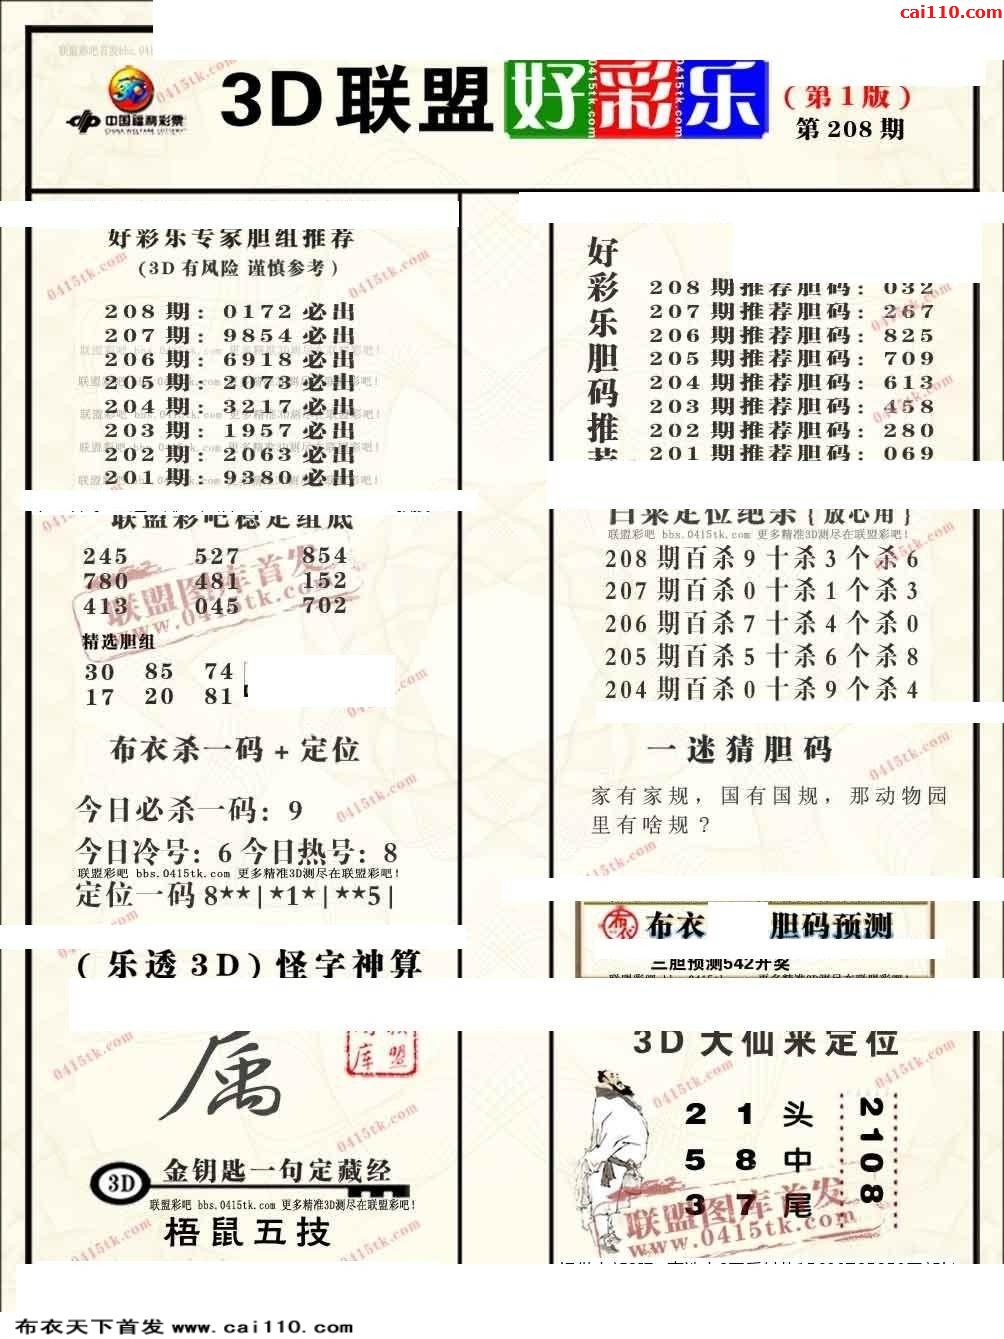 cai110.com
中国福利彩票
CHINA WELFARE LOTTERY
3D联盟好彩乐
(第1版)
第208期
好彩乐专家胆组推荐
(3D有风险 谨慎参考)
208期: 0172必出
207期: 9854必出
206期: 6918必出
205期: 2073必出
204期: 3217必出
203期: 1957必出
202期: 2063必出
201期: 9380必出
联盟彩吧稳定组底
245 527 854
780 481 152
413 045 702
精选胆组
30 85 74
17 20 81
布衣杀一码+定位
今日必杀一码: 9
今日冷号: 6 今日热号: 8
联盟彩吧 bbs.0415tk.com 更多精准3D测尽在联盟彩吧!
定位一码 8**|*1*|**5|
(乐透3D)怪字神算
联盟图库首发
www.0415tk.com
3D
金钥匙一句定藏经
联盟彩吧 bbs.0415tk.com 更多精准3D测尽在联盟彩吧!
梧鼠五技
好彩乐胆码推荐
208期推荐胆码: 032
207期推荐胆码: 267
206期推荐胆码: 825
205期推荐胆码: 709
204期推荐胆码: 613
203期推荐胆码: 458
202期推荐胆码: 280
201期推荐胆码: 069
白菜定位绝杀{放心用}
联盟彩吧 bbs.0415tk.com 更多精准3D测尽在联盟彩吧!
208期百杀9十杀3个杀6
207期百杀0十杀1个杀3
206期百杀7十杀4个杀0
205期百杀5十杀6个杀8
204期百杀0十杀9个杀4
一迷猜胆码
家有家规，国有国规，那动物园
里有啥规?
布衣 布衣 胆码预测
三胆预测542开奖
3D大仙来定位
2 1 头
5 8 中
3 7 尾
2108
联盟图库首发
www.0415tk.com
布衣天下首发 www.cai110.com